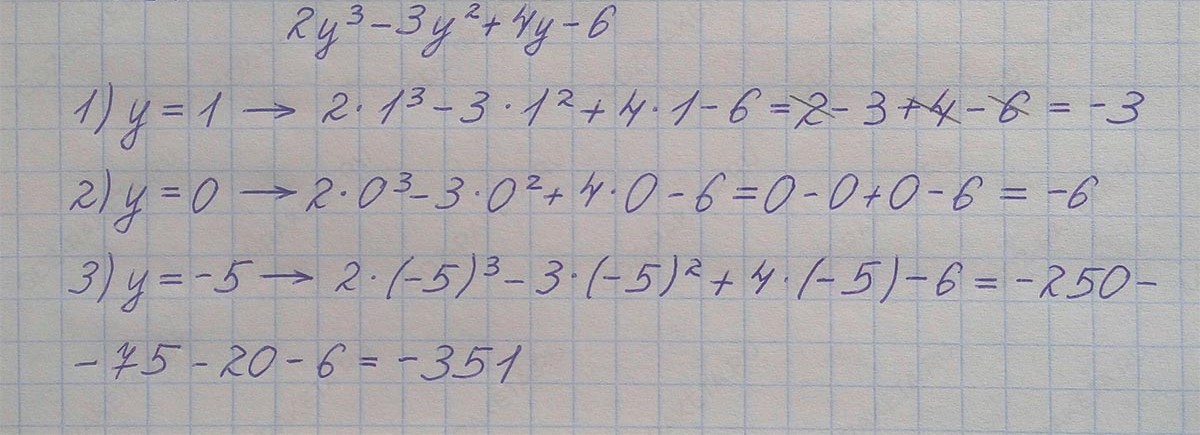 2y³ - 3y² + 4y - 6
1) y = 1 → 2 · 1³ - 3 · 1² + 4 · 1 - 6 = 2 - 3 + 4 - 6 = -3
2) y = 0 → 2 · 0³ - 3 · 0² + 4 · 0 - 6 = 0 - 0 + 0 - 6 = -6
3) y = -5 → 2 · (-5)³ - 3 · (-5)² + 4 · (-5) - 6 = -250 -
- 75 - 20 - 6 = -351